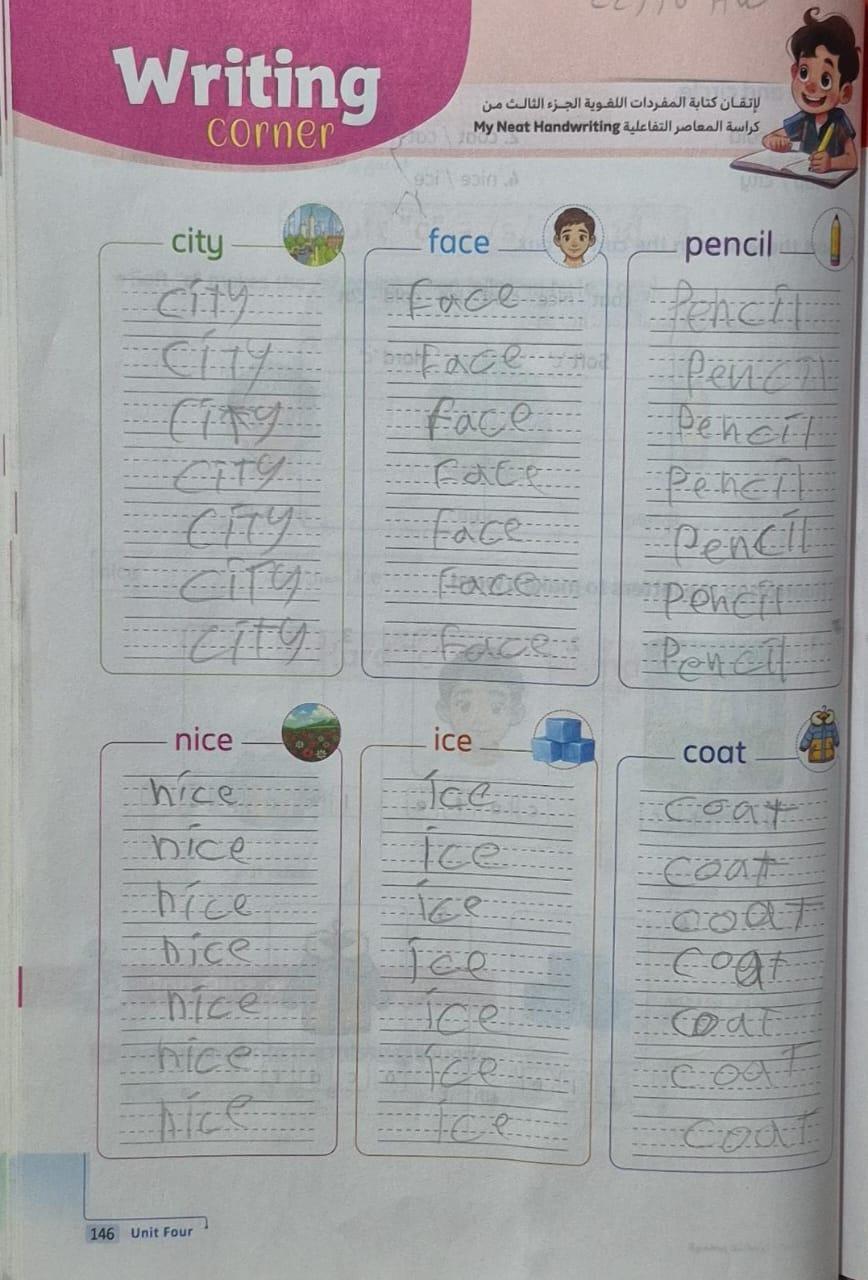 Writing
corner
لإتقان كتابة المفردات اللغوية الجزء الثالث من
كراسة المعاصر التفاعلية My Neat Handwriting
city
face
pencil
city
face
Pencil
city
face
Pencil
city
face
Pencil
city
face
Pencil
city
face
Pencil
city
face
Pencil
city
face
Pencil
nice
ice
coat
nice
ice
coat
nice
ice
coat
nice
ice
coat
nice
ice
coat
nice
ice
coat
nice
ice
coat
nice
ice
coat
146 Unit Four